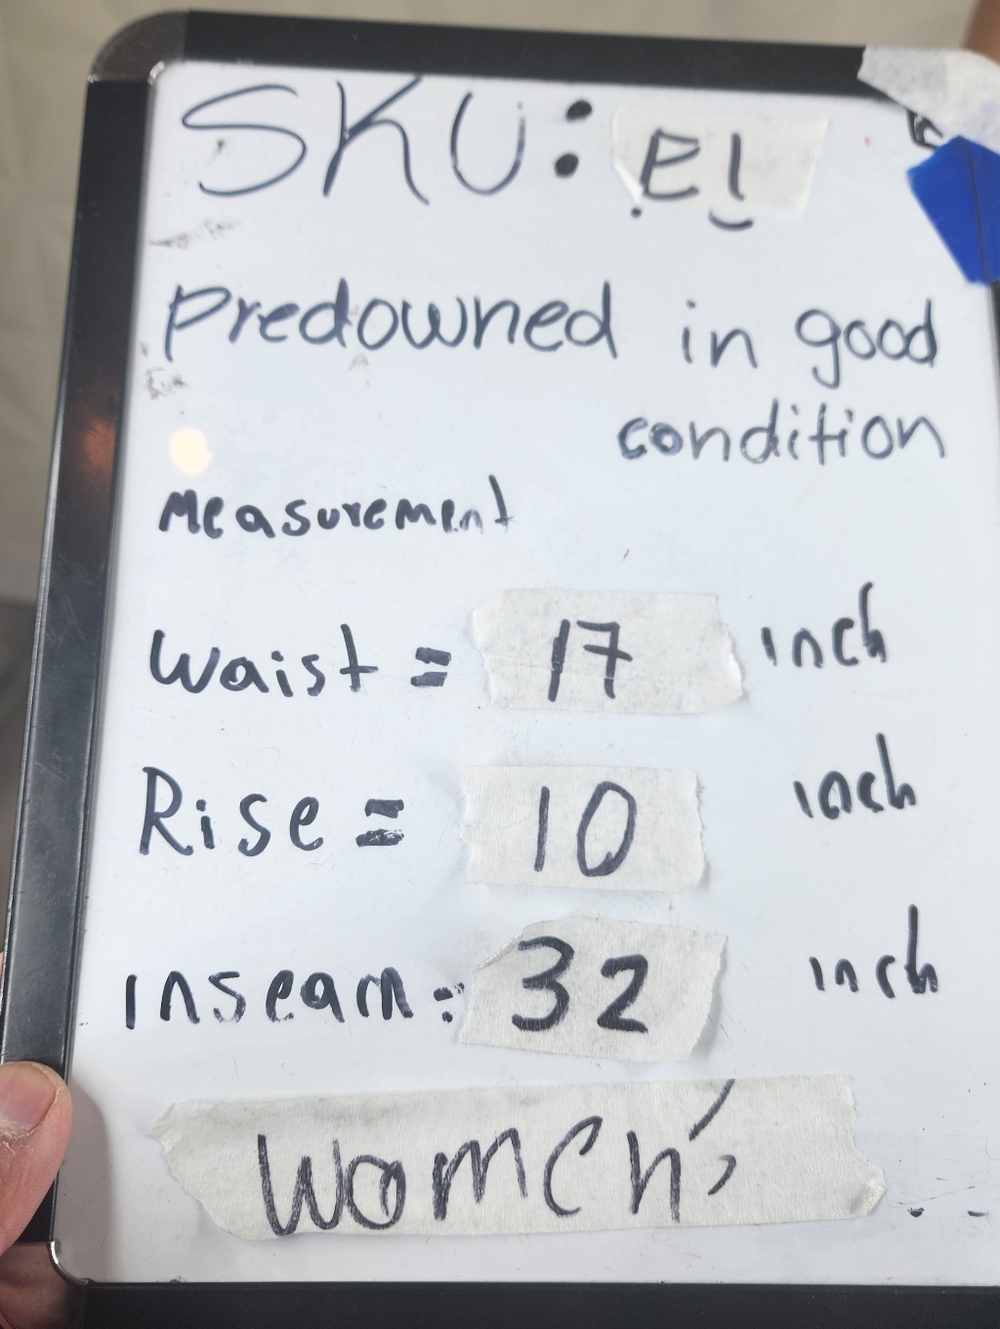 SKU: E1
Predowned in good
condition
Measurement
Waist = 17 inch
Rise = 10 inch
Inseam: 32 inch
Women's